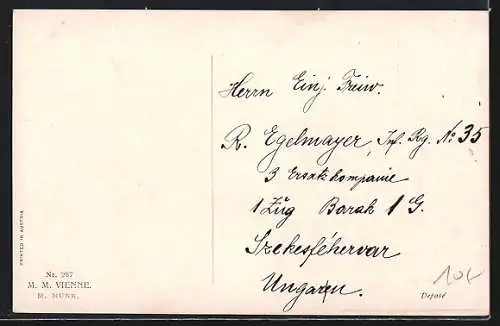 Herrn Einj. Freiw.
R. Egelmayer, Inf. Rg. No 35
3 Ersatzkompanie
1 Zug Barak 1 G.
Szekesféhervar
Ungarn.
PRINTED IN AUSTRIA
Nr. 267
M. M. VIENNE.
M. MUNK.
Déposé